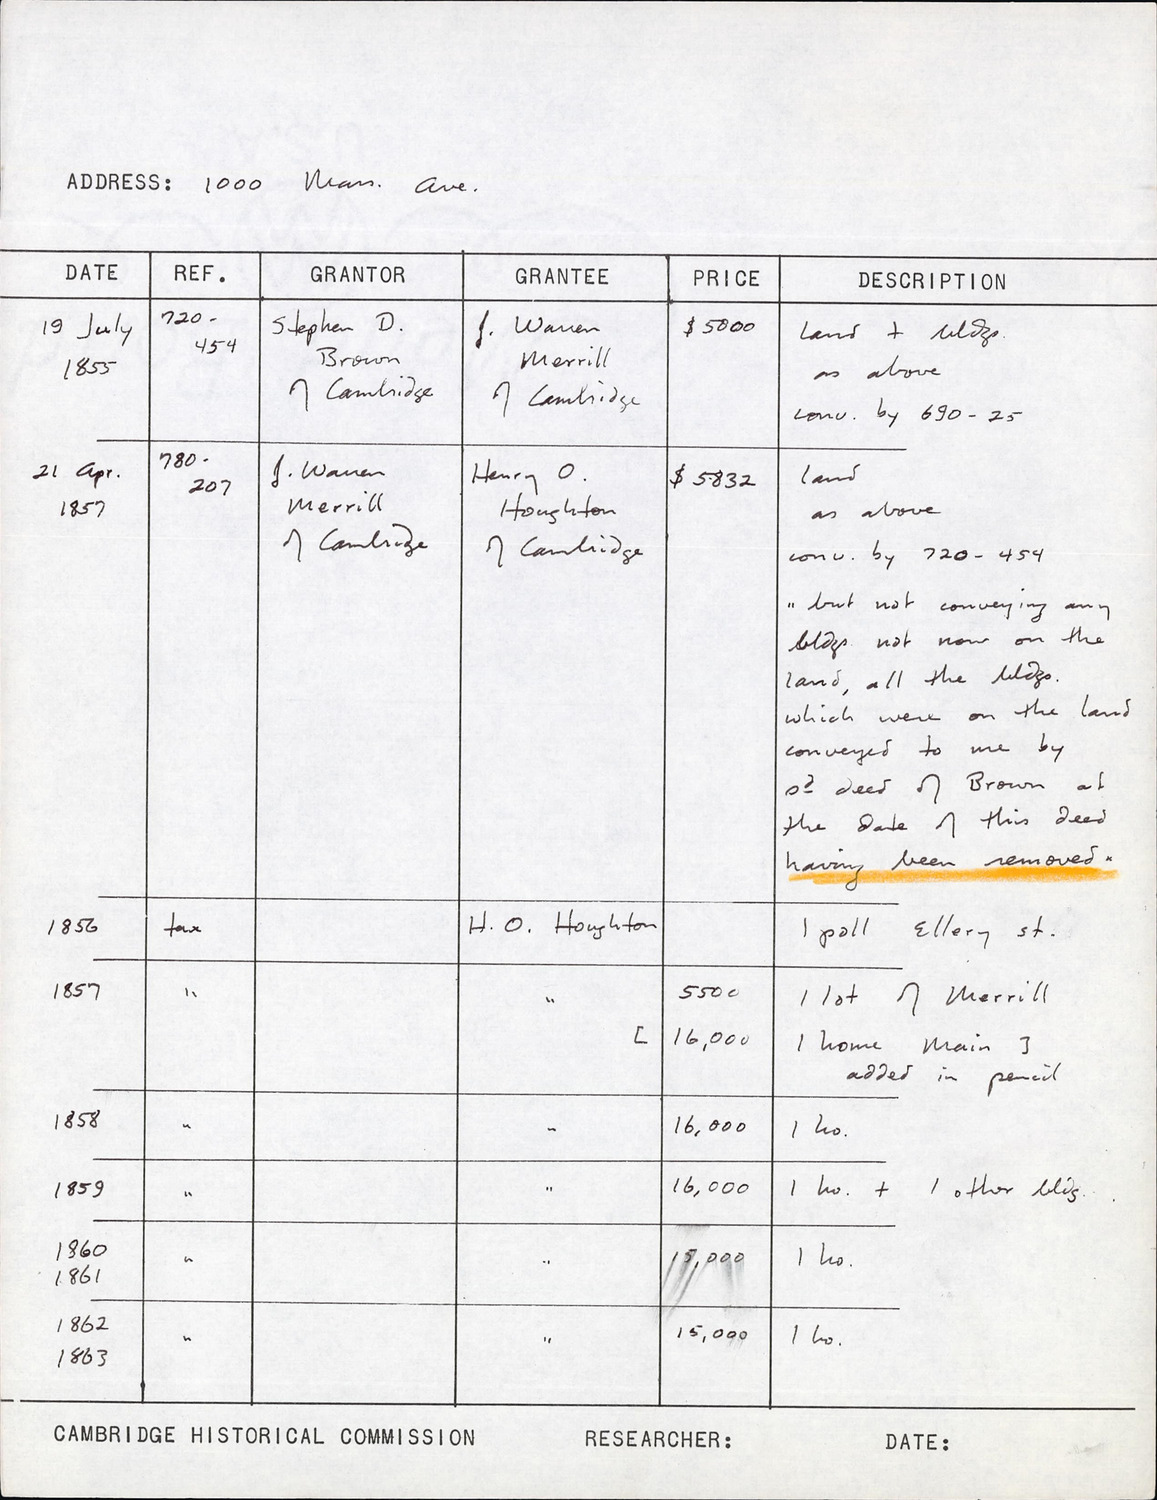 ADDRESS: 1000 Mass. Ave.
DATE REF. GRANTOR GRANTEE PRICE DESCRIPTION
19 July 1855
720-
454
Stephen D.
Brown
of Cambridge
J. Warren
Merrill
of Cambridge
$5000
land + bldgs.
as above
conv. by 690-25
21 Apr.
1857
780-
207
J. Warren
Merrill
of Cambridge
Henry O.
Houghton
of Cambridge
$5832
land
as above
conv. by 720-454
"but not conveying any
bldgs not now on the
land, all the bldgs.
which were on the land
conveyed to me by
sd deed of Brown at
the date of this deed
having been removed"
1856 tax H. O. Houghton 1 poll Ellery st.
1857 " " 5500 1 lot of Merrill
[ 16,000 1 home Main ]
added in pencil
1858 " " 16,000 1 ho.
1859 " " 16,000 1 ho. + 1 other bldg.
1860
1861
" " 15,000 1 ho.
1862
1863
" " 15,000 1 ho.
CAMBRIDGE HISTORICAL COMMISSION RESEARCHER: DATE: